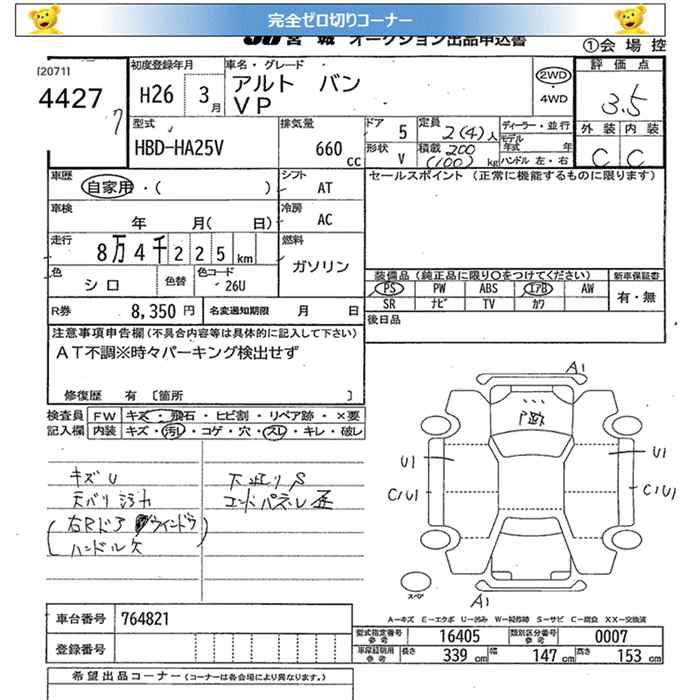 完全ゼロ切りコーナー
JU宮城 オークション出品申込書
①会場控
[2071]
4427
7
初度登録年月
H26 3月
車名・グレード
アルト バン
VP
2WD
4WD
評価点
3.5
外装 内装
C C
型式
HBD-HA25V
排気量
660 cc
ドア 5
形状 V
定員 2(4)人
積載 200 (100) kg
ディーラー・並行
モデル年式 年
ハンドル 左・右
車歴
自家用・( )
シフト
AT
セールスポイント (正常に機能するものに限ります)
車検
年 月( 日)
冷房
AC
走行
8万4千225km
燃料
ガソリン
色
シロ
色替
色コード
26U
装備品(純正品に限り○をつけてください)
PS PW ABS エアB AW
SR ナビ TV カワ
新車保証書
有・無
R券 8,350円
名変通知期限 月 日
後日品
注意事項申告欄(不具合内容等は具体的に記入して下さい)
AT不調※時々パーキング検出せず
修復歴 有 [箇所 ]
検査員記入欄
FW キズ・飛石・ヒビ割・リペア跡・×要
内装 キズ・汚レ・コゲ・穴・スレ・キレ・破レ
キズU
天バリ汚れ
(右Rドアウインドウ
ハンドル欠)
下廻りS
エンドパネル歪
A1
U1
U1
C1U1
C1U1
スペア
A1
A=キズ E=エクボ U=凹み W=補修跡 S=サビ C=腐食 XX=交換済
車台番号 764821
登録番号
型式指定番号 参考 16405
類別区分番号 0007
車庫証明用 参考 長さ 339cm 幅 147cm 高さ 153cm
希望出品コーナー(コーナーは各会場により異なります。)